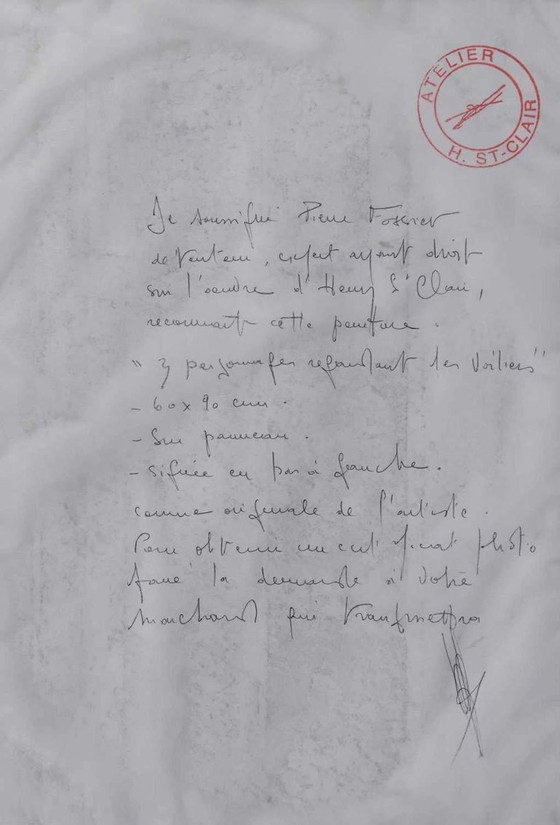 ATELIER
H. ST-CLAIR
Je soussigné Pierre
détenteur, expert ayant droit
sur l'oeuvre d'Henry St Clair,
reconnait cette peinture.
" 3 personnages regardant les voiliers"
- 60 x 90 cm.
- Sur panneau.
- signée en bas à gauche.
comme originale de l'artiste.
Pour obtenir un certificat photo
faire la demande à votre
marchand qui transmettra